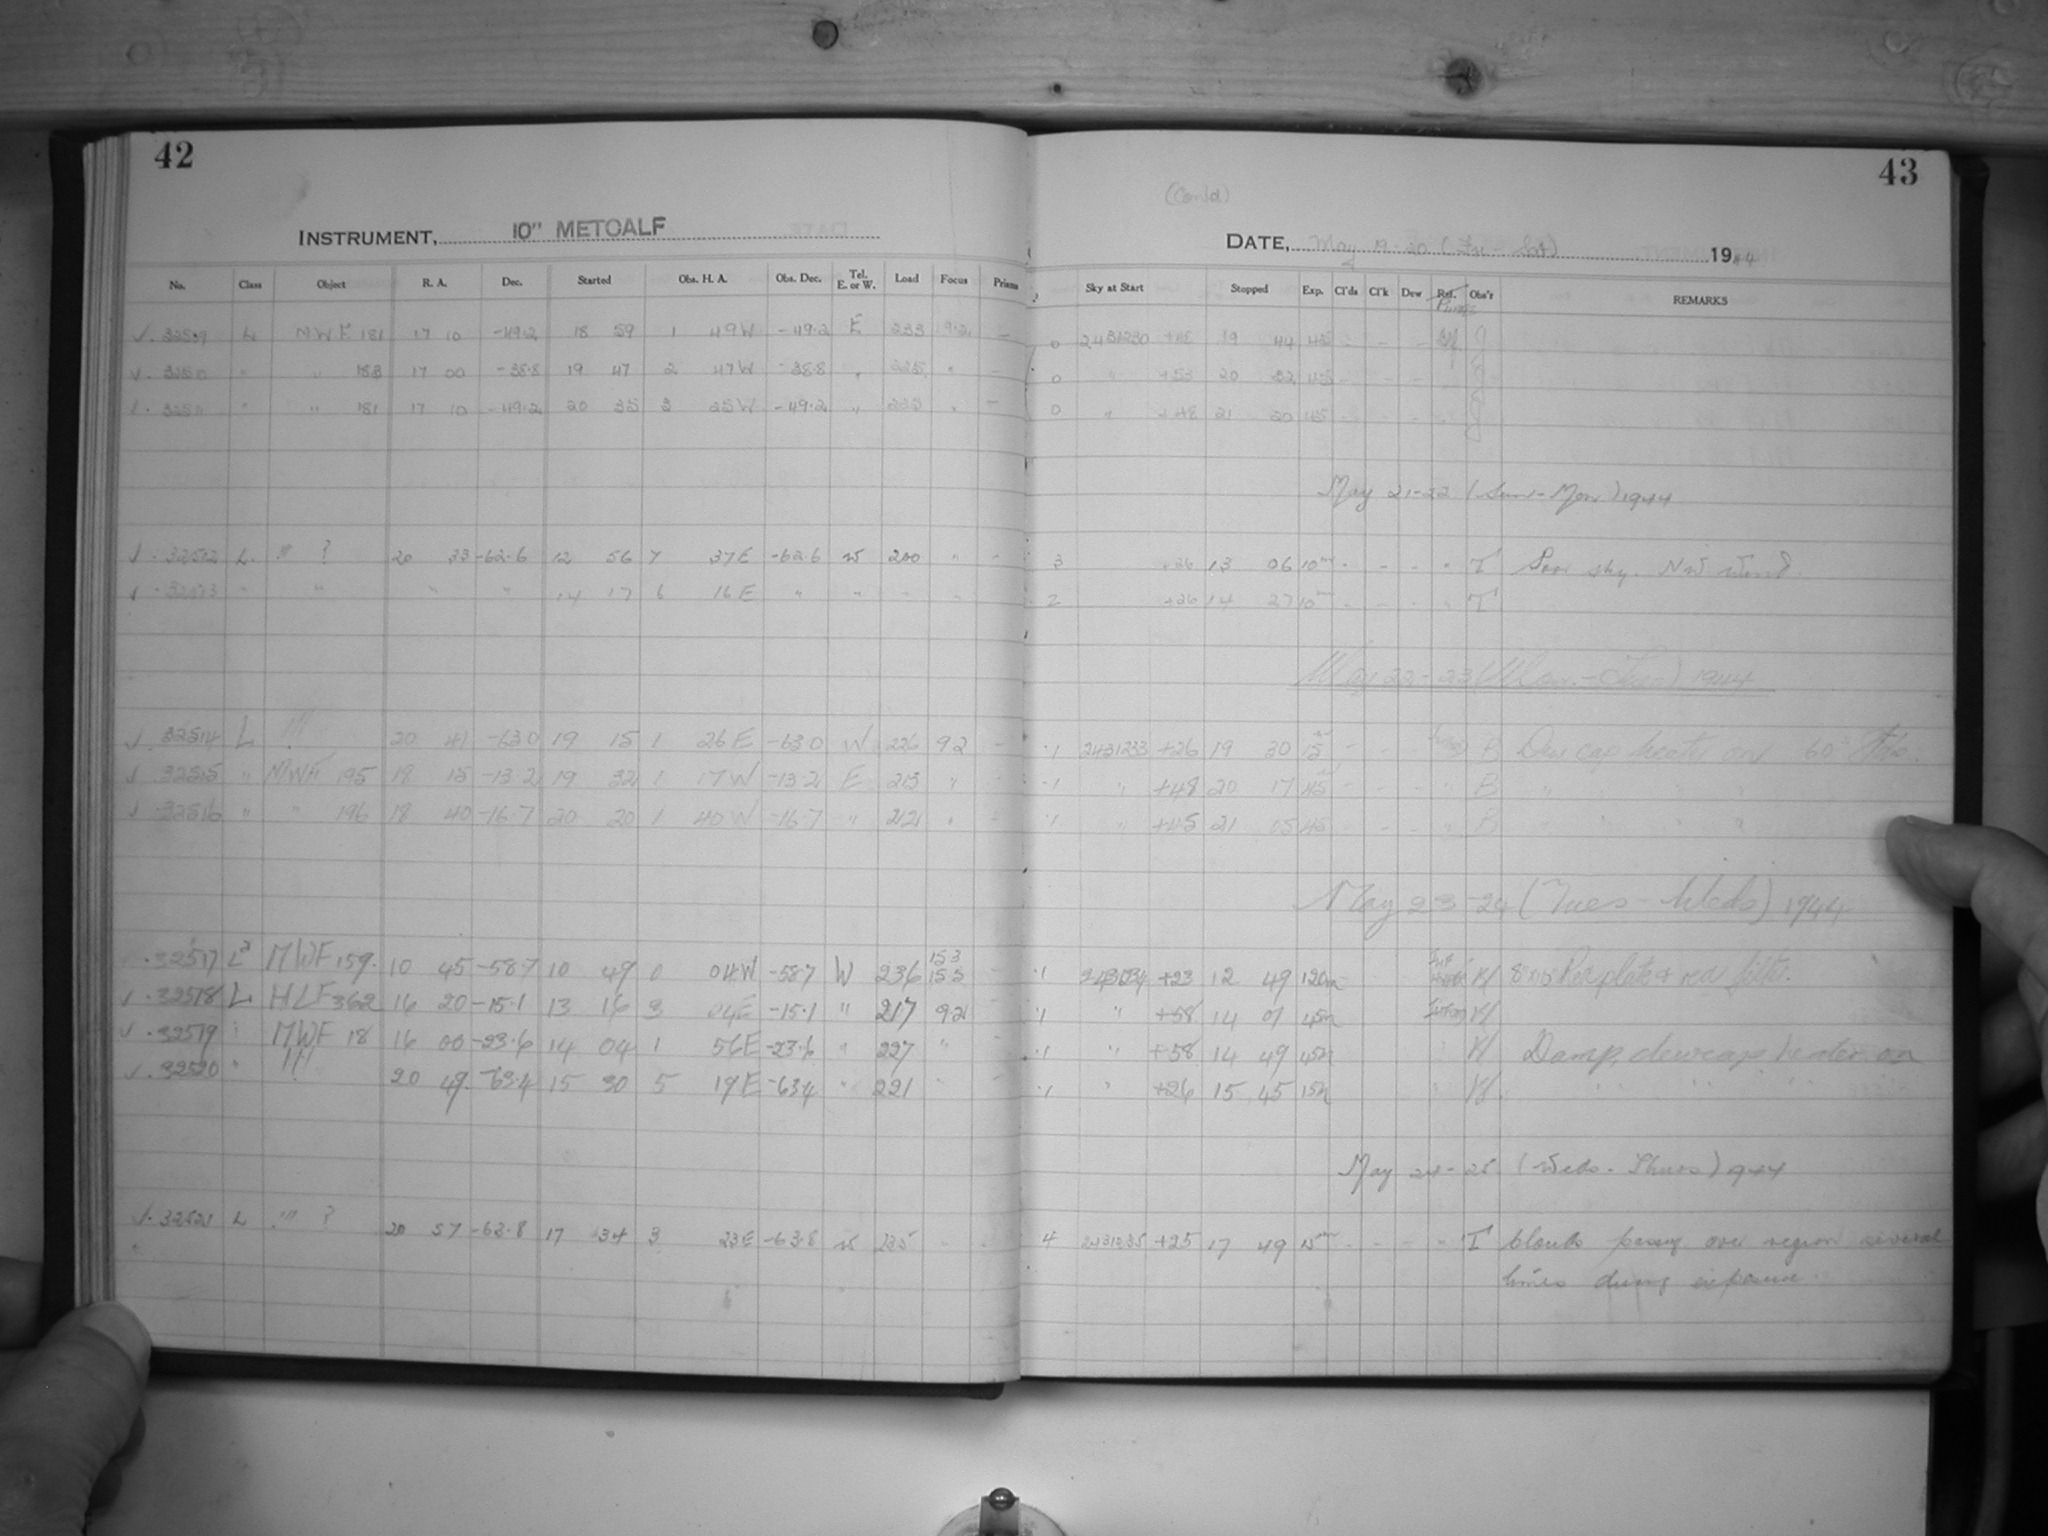 42
INSTRUMENT, 10" METCALF
No. Class Object R. A. Dec. Started Obs. H. A. Obs. Dec. Tel. E. or W. Load Focus Prisms
32509 L MWF 181 17 10 -49.2 18 59 1 49W -49.2 E 233
" " 183 17 00 -38.8 19 47 2 47W -38.8 " 225 " -
" " 181 17 10 -49.2 20 35 3 25W -49.2 " " -
32512 L. ? 20 33 -62.6 12 56 7 37E -62.6 W 200 " -
32513 " " " " 14 17 6 16E " " "
32514 L 20 41 -63.0 19 15 1 26E -63.0 W 226 9.2 -
32515 " MWF 195 18 15 -13.2 19 32 1 17W -13.2 E 213 " -
32516 " " 196 18 40 -16.7 20 20 1 40W -16.7 " 212 " -
32517 L MWF 159. 10 45 -58.7 10 49 0 04W -58.7 W 236 15.3 15.5
32518 L HLF 362 16 20 -15.1 13 16 3 04E -15.1 " 217 9.2
32519 MWF 18 16 00 -23.6 14 04 1 56E -23.6 " 227 "
32520 " 20 49. -63.4 15 30 5 19E -63.4 " 221
32521 L ? 20 57 -63.8 17 34 3 23E -63.8 W 235
43
(Cont'd)
DATE, May 19-20 (Fri - Sat) 1944
Sky at Start Stopped Exp. Cl'ds Cl'k Dew Ref. Obs'r REMARKS
0 2431230 +48 19 44 45 J
0 " +53 20 32 45 J
0 " +48 21 20 45 J
May 21-22 (Sun - Mon) 1944
3 +26 13 06 10m T Poor sky. NW wind.
2 +26 14 27 10m T
May 22-23 (Mon. - Tues) 1944
.1 2431233 +26 19 30 15 B Dew cap heater on 60
.1 " +48 20 17 45 B " " "
.1 " +45 21 05 45 B " " "
May 23-24 (Tues - Weds) 1944
.1 2431234 +23 12 49 120m 8x10 Red plate & red filter.
.1 " +58 14 01 45m
.1 " +58 14 49 45m Damp, dewcap heater on
.1 " +26 15 45 15m " " " "
May 24-25 (Weds - Thurs) 1944
4 2431235 +25 17 49 15m T Clouds passing over region several
times during exposure.